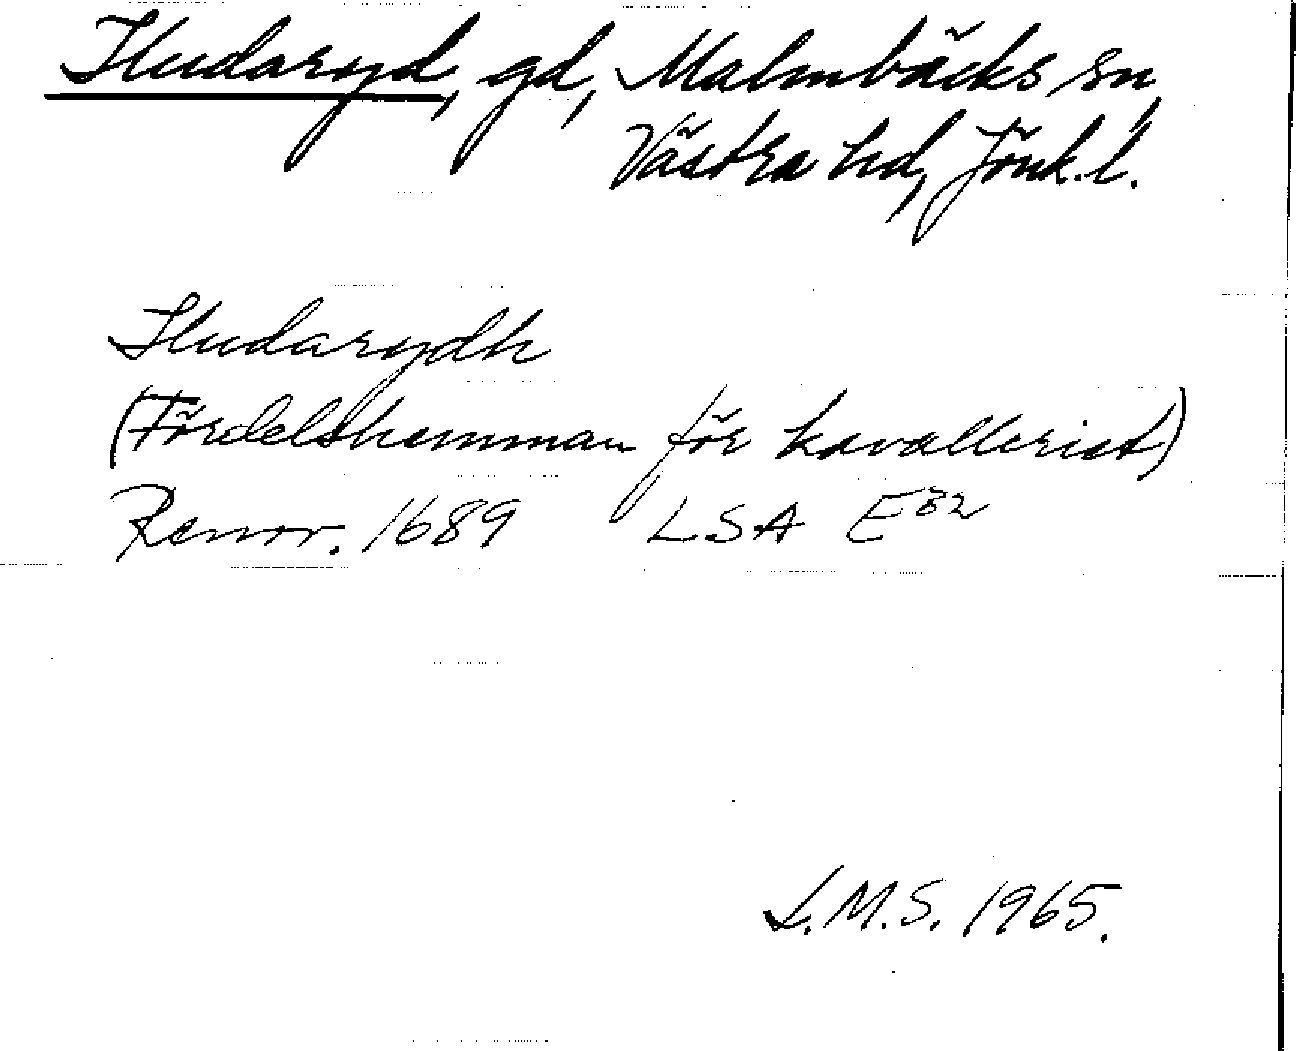 gd, Malmbäcks sn,
Västra hd, Jönk. l.
(Fördelshemman för kavallerist)
Renov. 1689 LSA E82
L.M.S. 1965.